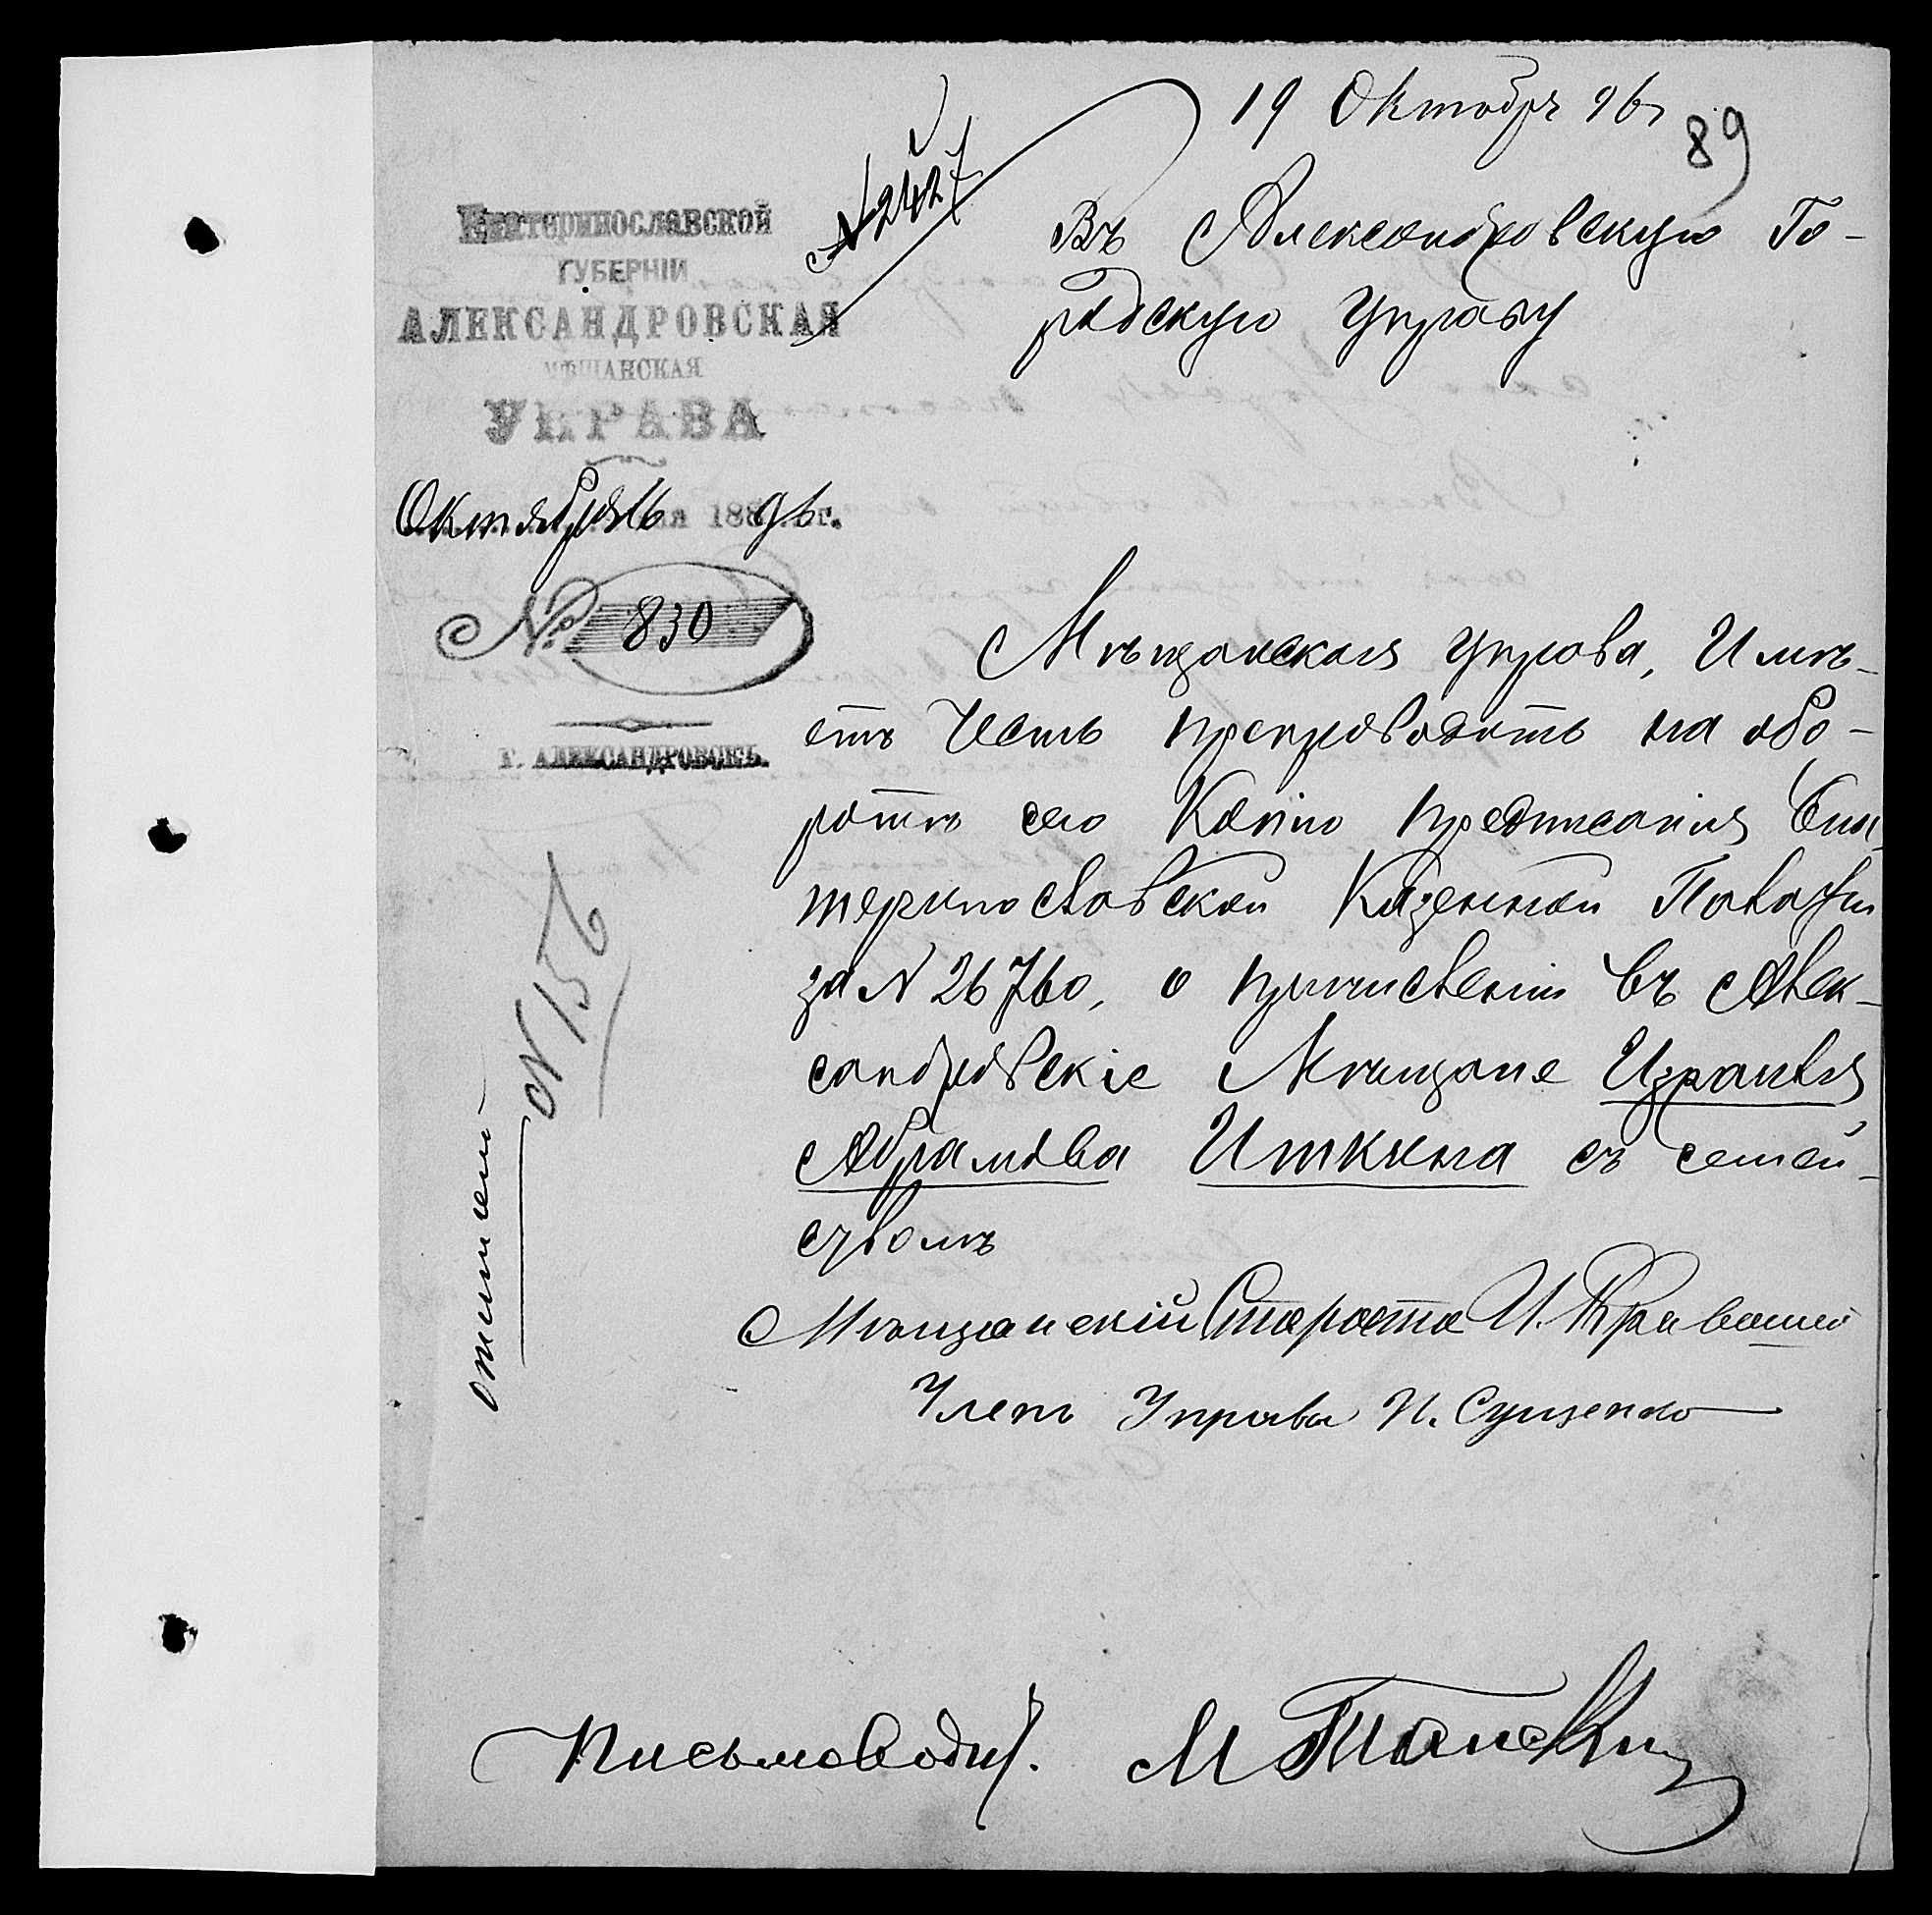 19 Октября 96 г
89
№ 2427
Екатеринославской
ГУБЕРНІИ
АЛЕКСАНДРОВСКАЯ
МѢЩАНСКАЯ
УПРАВА
Октября 16 дня 1889 96 г.
№ 830
Г. АЛЕКСАНДРОВСКЪ.
Въ Александровскую Го-
родскую Управу
Мѣщанская управа, Имѣ-
етъ честь препроводить на обо-
ротѣ сего Копію предписанія Ека
теринославской Казенной Палаты
за № 26760, о причисленіи въ Алек-
сандровскіе Мѣщане Израиля
Абрамова Иткина съ семей-
ствомъ
Мѣщанскій Староста И.
Членъ Управы И. Сущенко
Письмоводит.
М
№ 152